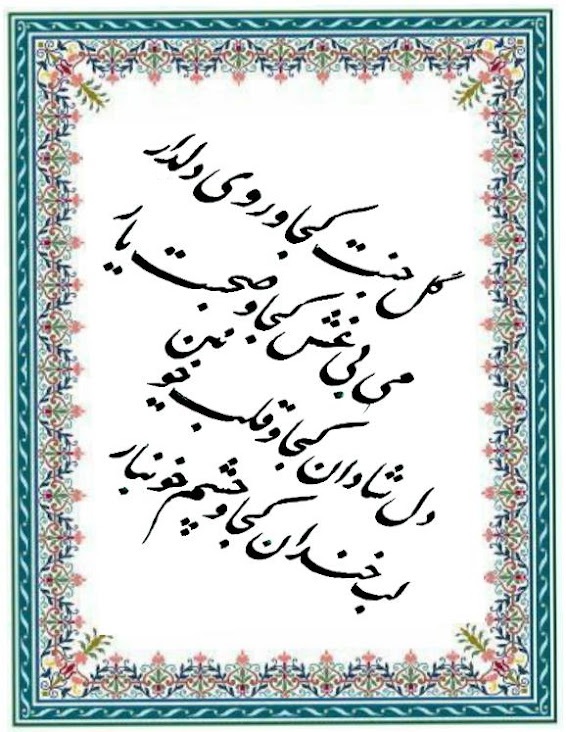 گل جنت کجا و روی دلدار
می بی غش کجا و صحبت یار
دل شادان کجا و قلب خونین
لب خندان کجا و چشم خونبار